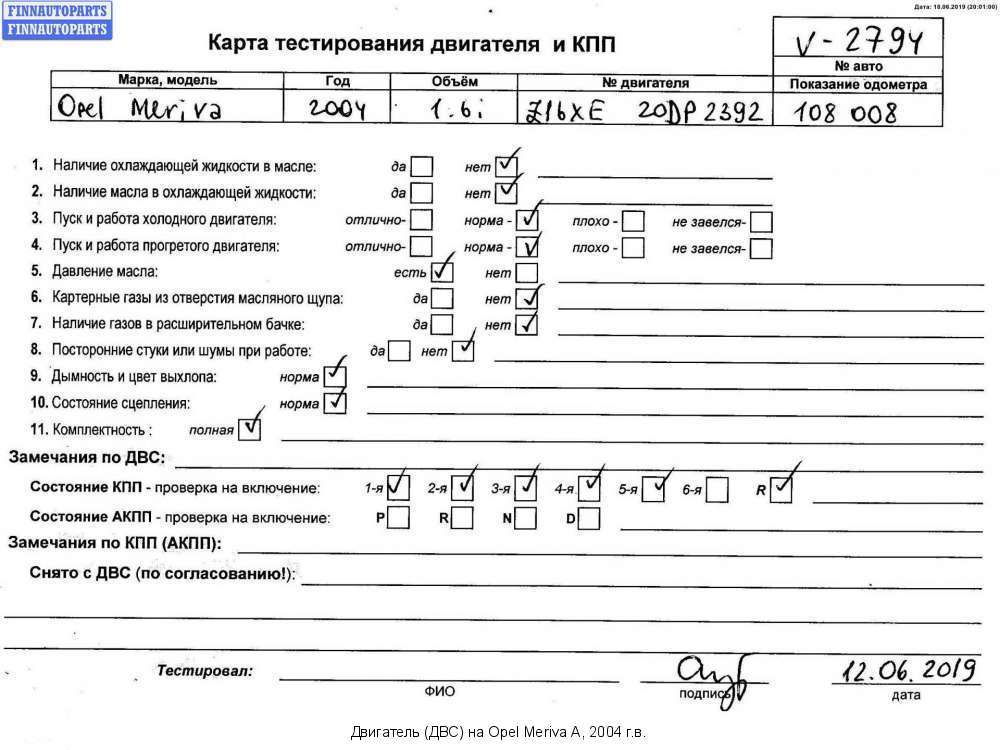 FINNAUTOPARTS
FINNAUTOPARTS
Дата: 18.06.2019 (20:01:00)
Карта тестирования двигателя и КПП
V - 2794
№ авто
Марка, модель Год Объём № двигателя Показание одометра
Opel Meriva 2004 1.6i Z16XE 20DP2392 108 008
1. Наличие охлаждающей жидкости в масле: да нет ✓
2. Наличие масла в охлаждающей жидкости: да нет ✓
3. Пуск и работа холодного двигателя: отлично- норма - ✓ плохо - не завелся-
4. Пуск и работа прогретого двигателя: отлично- норма - ✓ плохо - не завелся-
5. Давление масла: есть ✓ нет
6. Картерные газы из отверстия масляного щупа: да нет ✓
7. Наличие газов в расширительном бачке: да нет ✓
8. Посторонние стуки или шумы при работе: да нет ✓
9. Дымность и цвет выхлопа: норма ✓
10. Состояние сцепления: норма ✓
11. Комплектность : полная ✓
Замечания по ДВС:
Состояние КПП - проверка на включение: 1-я ✓ 2-я ✓ 3-я ✓ 4-я ✓ 5-я ✓ 6-я R ✓
Состояние АКПП - проверка на включение: P R N D
Замечания по КПП (АКПП):
Снято с ДВС (по согласованию!):
Тестировал: 12.06.2019
ФИО подпись дата
Двигатель (ДВС) на Opel Meriva A, 2004 г.в.